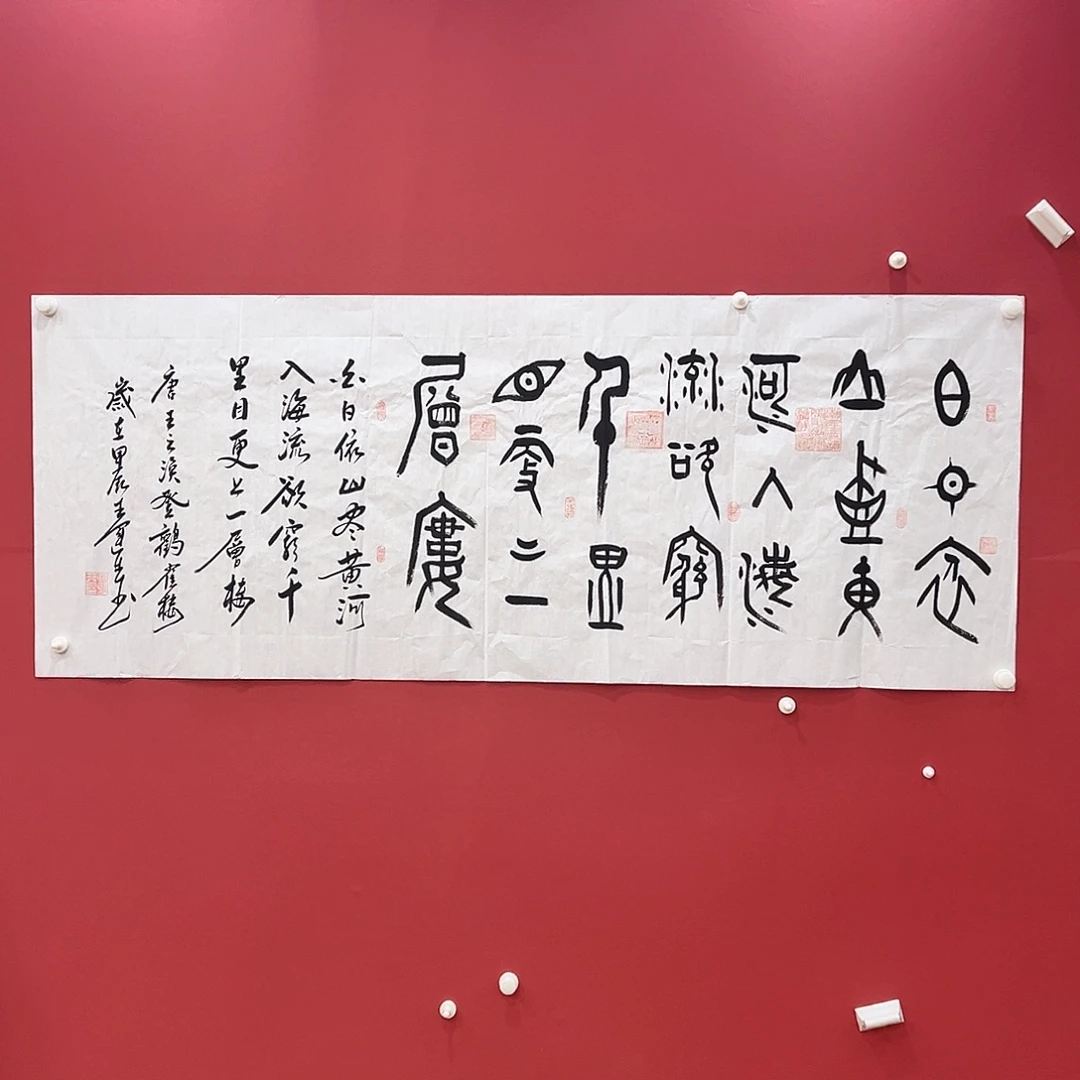 白日依
山盡黃
河入海
流欲窮
千里
目更上一
層樓
白日依山尽黄河
入海流欲窮千
里目更上一層楼
唐王之涣登鸛雀楼
歲在甲辰王书